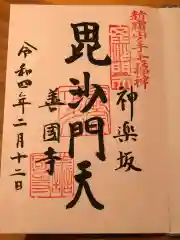 新宿山ノ手七福神
神楽坂
毘沙門天
善國寺
令和四年二月十二日